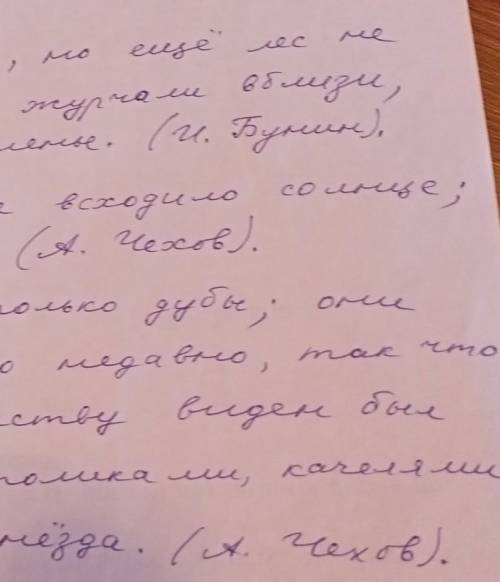 , но ещё лес не
журчали вблизи,
ленье. (И. Бунин).
е всходило солнце;
(А. Чехов).
только дубы; они
о недавно, так что
ству виден был
толиками, качелями
гнёзда. (А. Чехов).